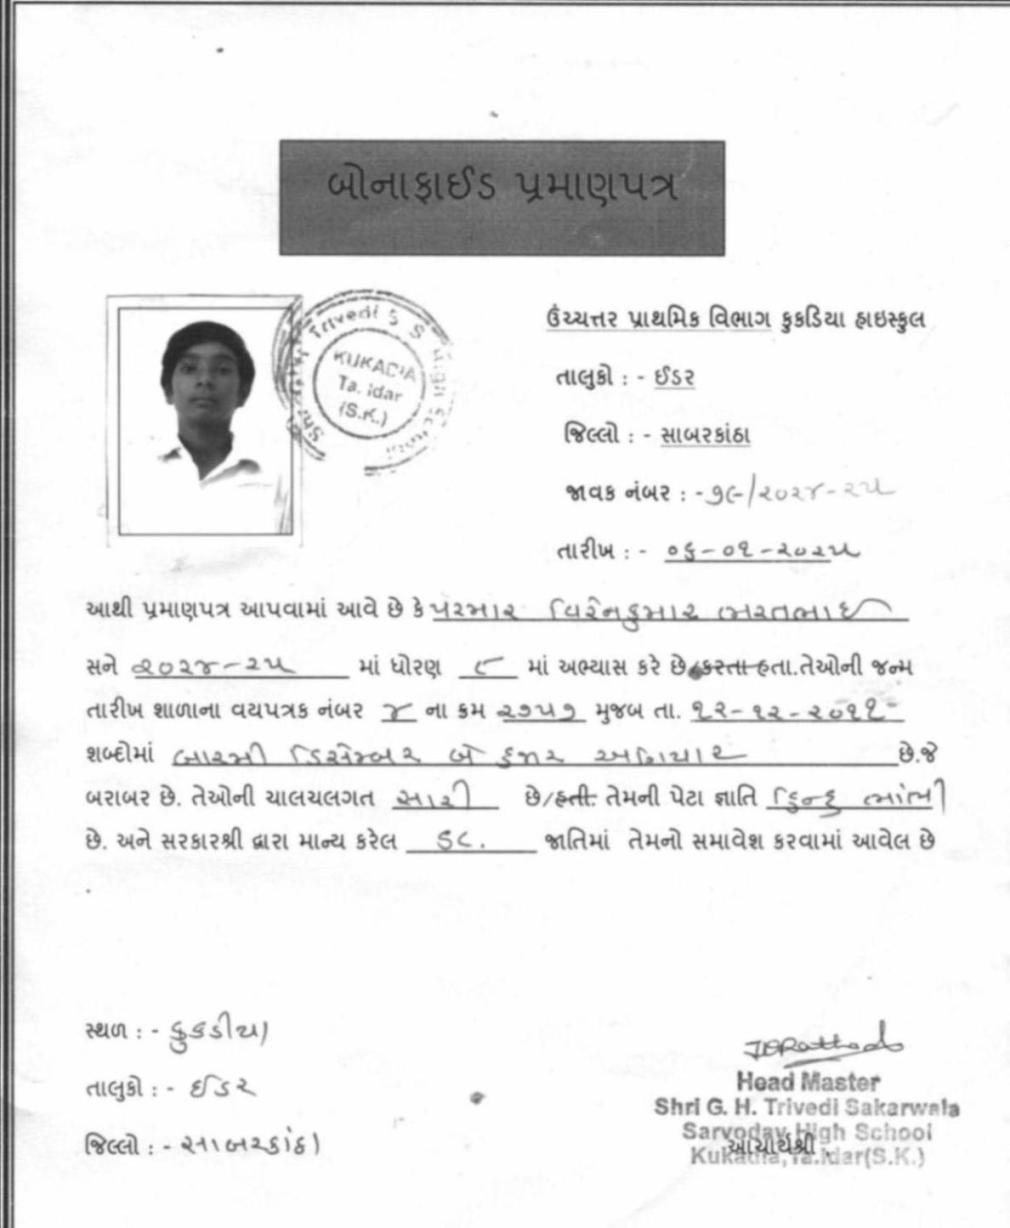 બોનાફાઈડ પ્રમાણપત્ર
Trivedi S S High School
KUKADIA
Ta. Idar
(S.K.)
ઉચ્ચત્તર પ્રાથમિક વિભાગ કુકડિયા હાઇસ્કુલ
તાલુકો : - ઈડર
જિલ્લો : - સાબરકાંઠા
જાવક નંબર : - ૭૯/૨૦૨૪-૨૫
તારીખ : - ૦૬-૦૧-૨૦૨૫
આથી પ્રમાણપત્ર આપવામાં આવે છે કે પરમાર વિરેનકુમાર ભરતભાઈ
સને ૨૦૨૪-૨૫ માં ધોરણ ૮ માં અભ્યાસ કરે છે/કરતા હતા.તેઓની જન્મ
તારીખ શાળાના વયપત્રક નંબર ૪ ના ક્રમ ૨૭૫૭ મુજબ તા. ૧૨-૧૨-૨૦૧૧
શબ્દોમાં બારમી ડિસેમ્બર બે હજાર અગિયાર છે.જે
બરાબર છે. તેઓની ચાલચલગત સારી છે/હતી. તેમની પેટા જ્ઞાતિ હિન્દુ ભાંભી
છે. અને સરકારશ્રી દ્વારા માન્ય કરેલ SC. જાતિમાં તેમનો સમાવેશ કરવામાં આવેલ છે
સ્થળ : - કુકડીયા
તાલુકો : - ઈડર
જિલ્લો : - સાબરકાંઠા
Head Master
Shri G. H. Trivedi Sakarwala
Sarvoday High School
આચાર્યશ્રી
Kukadia, Ta.Idar(S.K.)